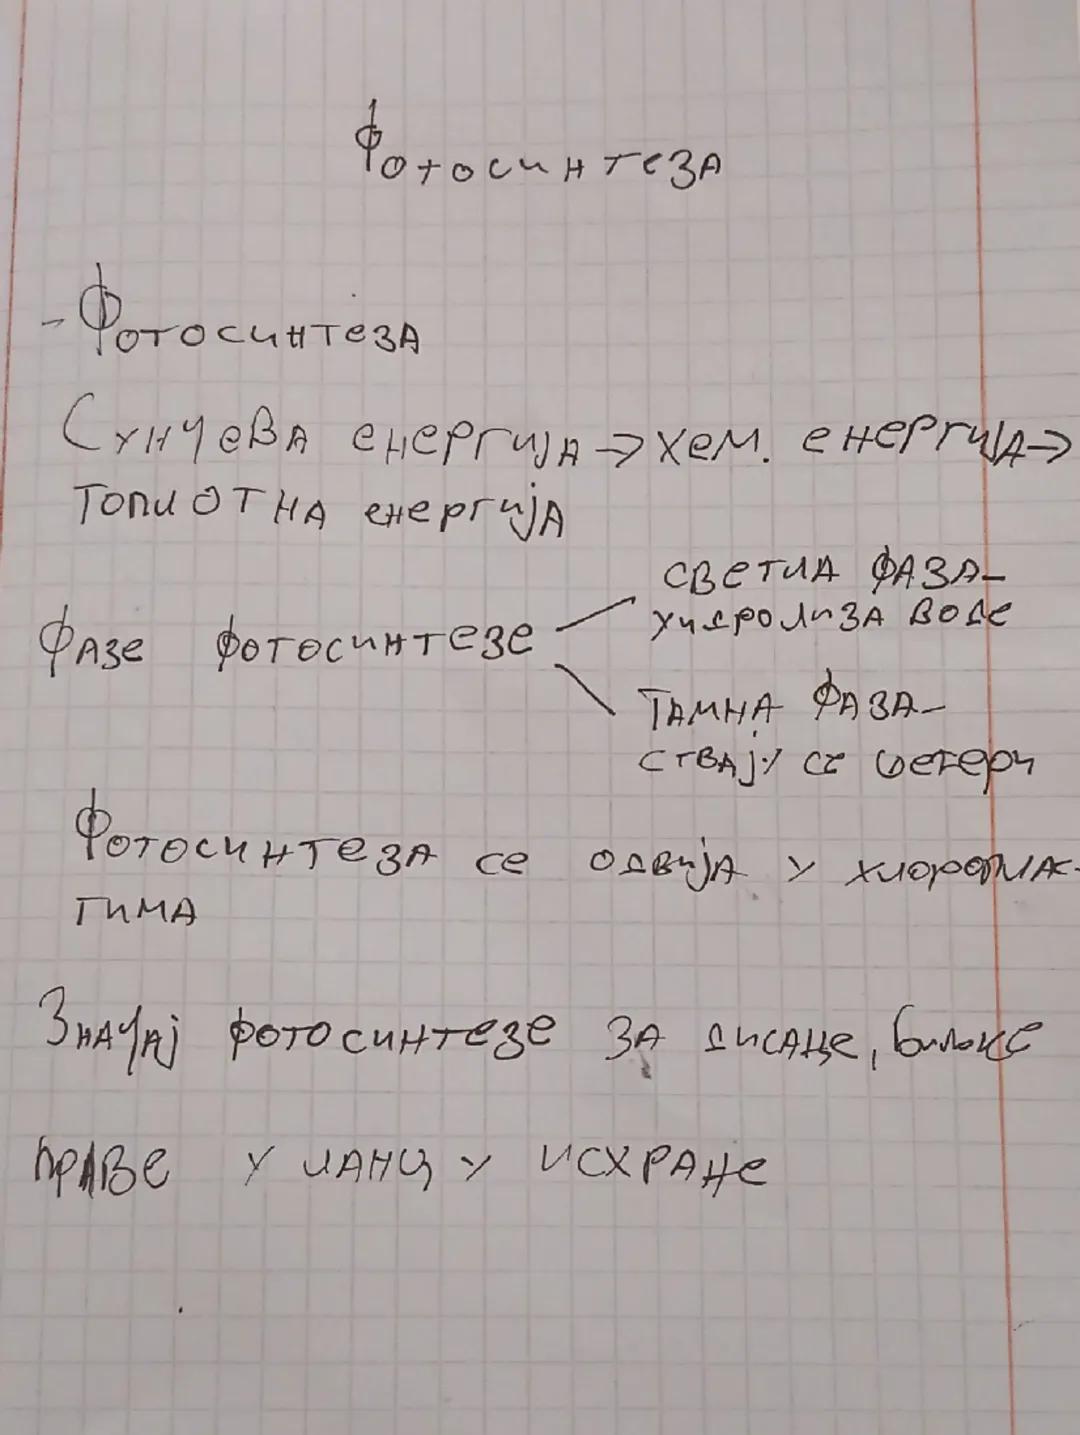 Фотосинтеза
- Фотосинтеза
Сунчева енергија → хем. енергија →
топлотна енергија
светла фаза -
хидролиза воде
Фазе фотосинтезе
тамна фаза -
ствају се шећери
Фотосинтеза се одвија у хлоропла-
тима
Значај фотосинтезе за дисање, биљке
праве у ланц у исхране